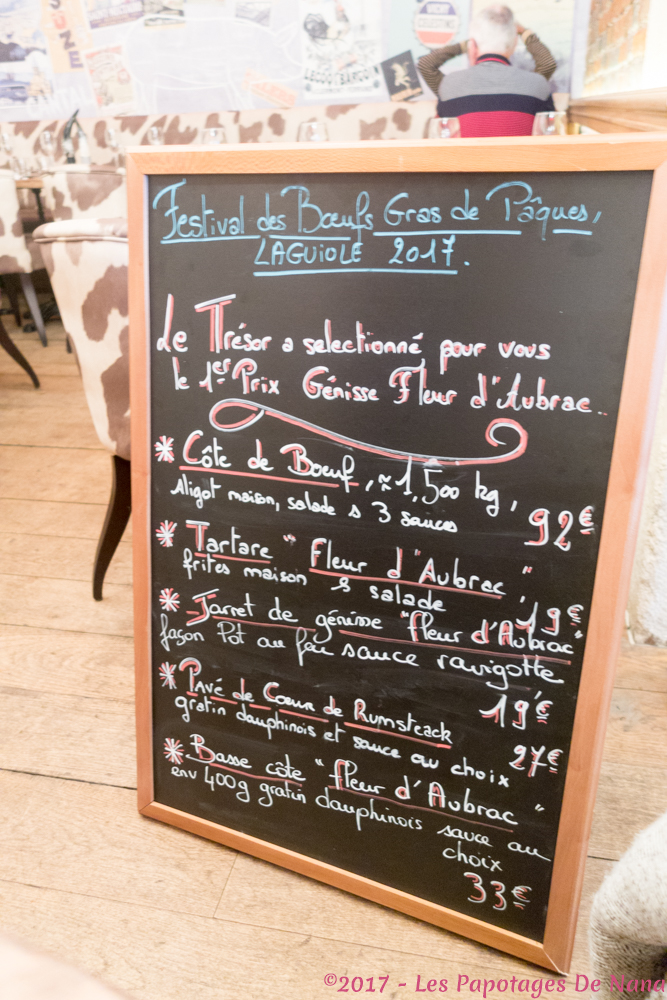 Festival des Bœufs Gras de Pâques,
LAGUIOLE 2017.
Le Trésor a selectionné pour vous
le 1er Prix Génisse Fleur d'Aubrac..
* Côte de Bœuf, ≈ 1,500 kg,
Aligot maison, salade & 3 sauces
92€
* Tartare " Fleur d'Aubrac "
frites maison & salade
19€
* Jarret de génisse "fleur d'Aubrac"
façon Pot au feu sauce ravigotte
19€
* Pavé de Cœur de Rumsteack
gratin dauphinois et sauce au choix
27€
* Basse côte "fleur d'Aubrac"
env 400g gratin dauphinois sauce au
choix
33€
©2017 - Les Papotages De Nana